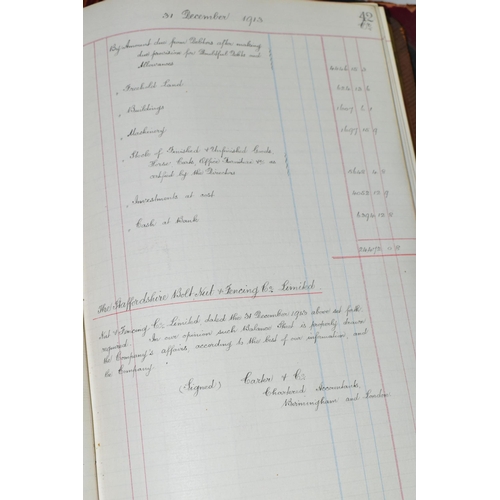 31 December 1913
42
By Amount due from Debtors after making
due provision for Doubtful Debts and
Allowances
" Freehold Land
" Buildings
" Machinery
" Stock of Finished & Unfinished Goods,
Horse, Carts, Office Furniture &c as
certified by the Directors
" Investments at cost
" Cash at Bank
The Staffordshire Bolt, Nut & Fencing Co. Limited.
Nut & Fencing Co. Limited, dated the 31 December 1913 above set forth
required. In our opinion such Balance Sheet is properly drawn
the Company's affairs, according to the best of our information, and
the Company.
(Signed) Carter & Co.
Chartered Accountants,
Birmingham and London